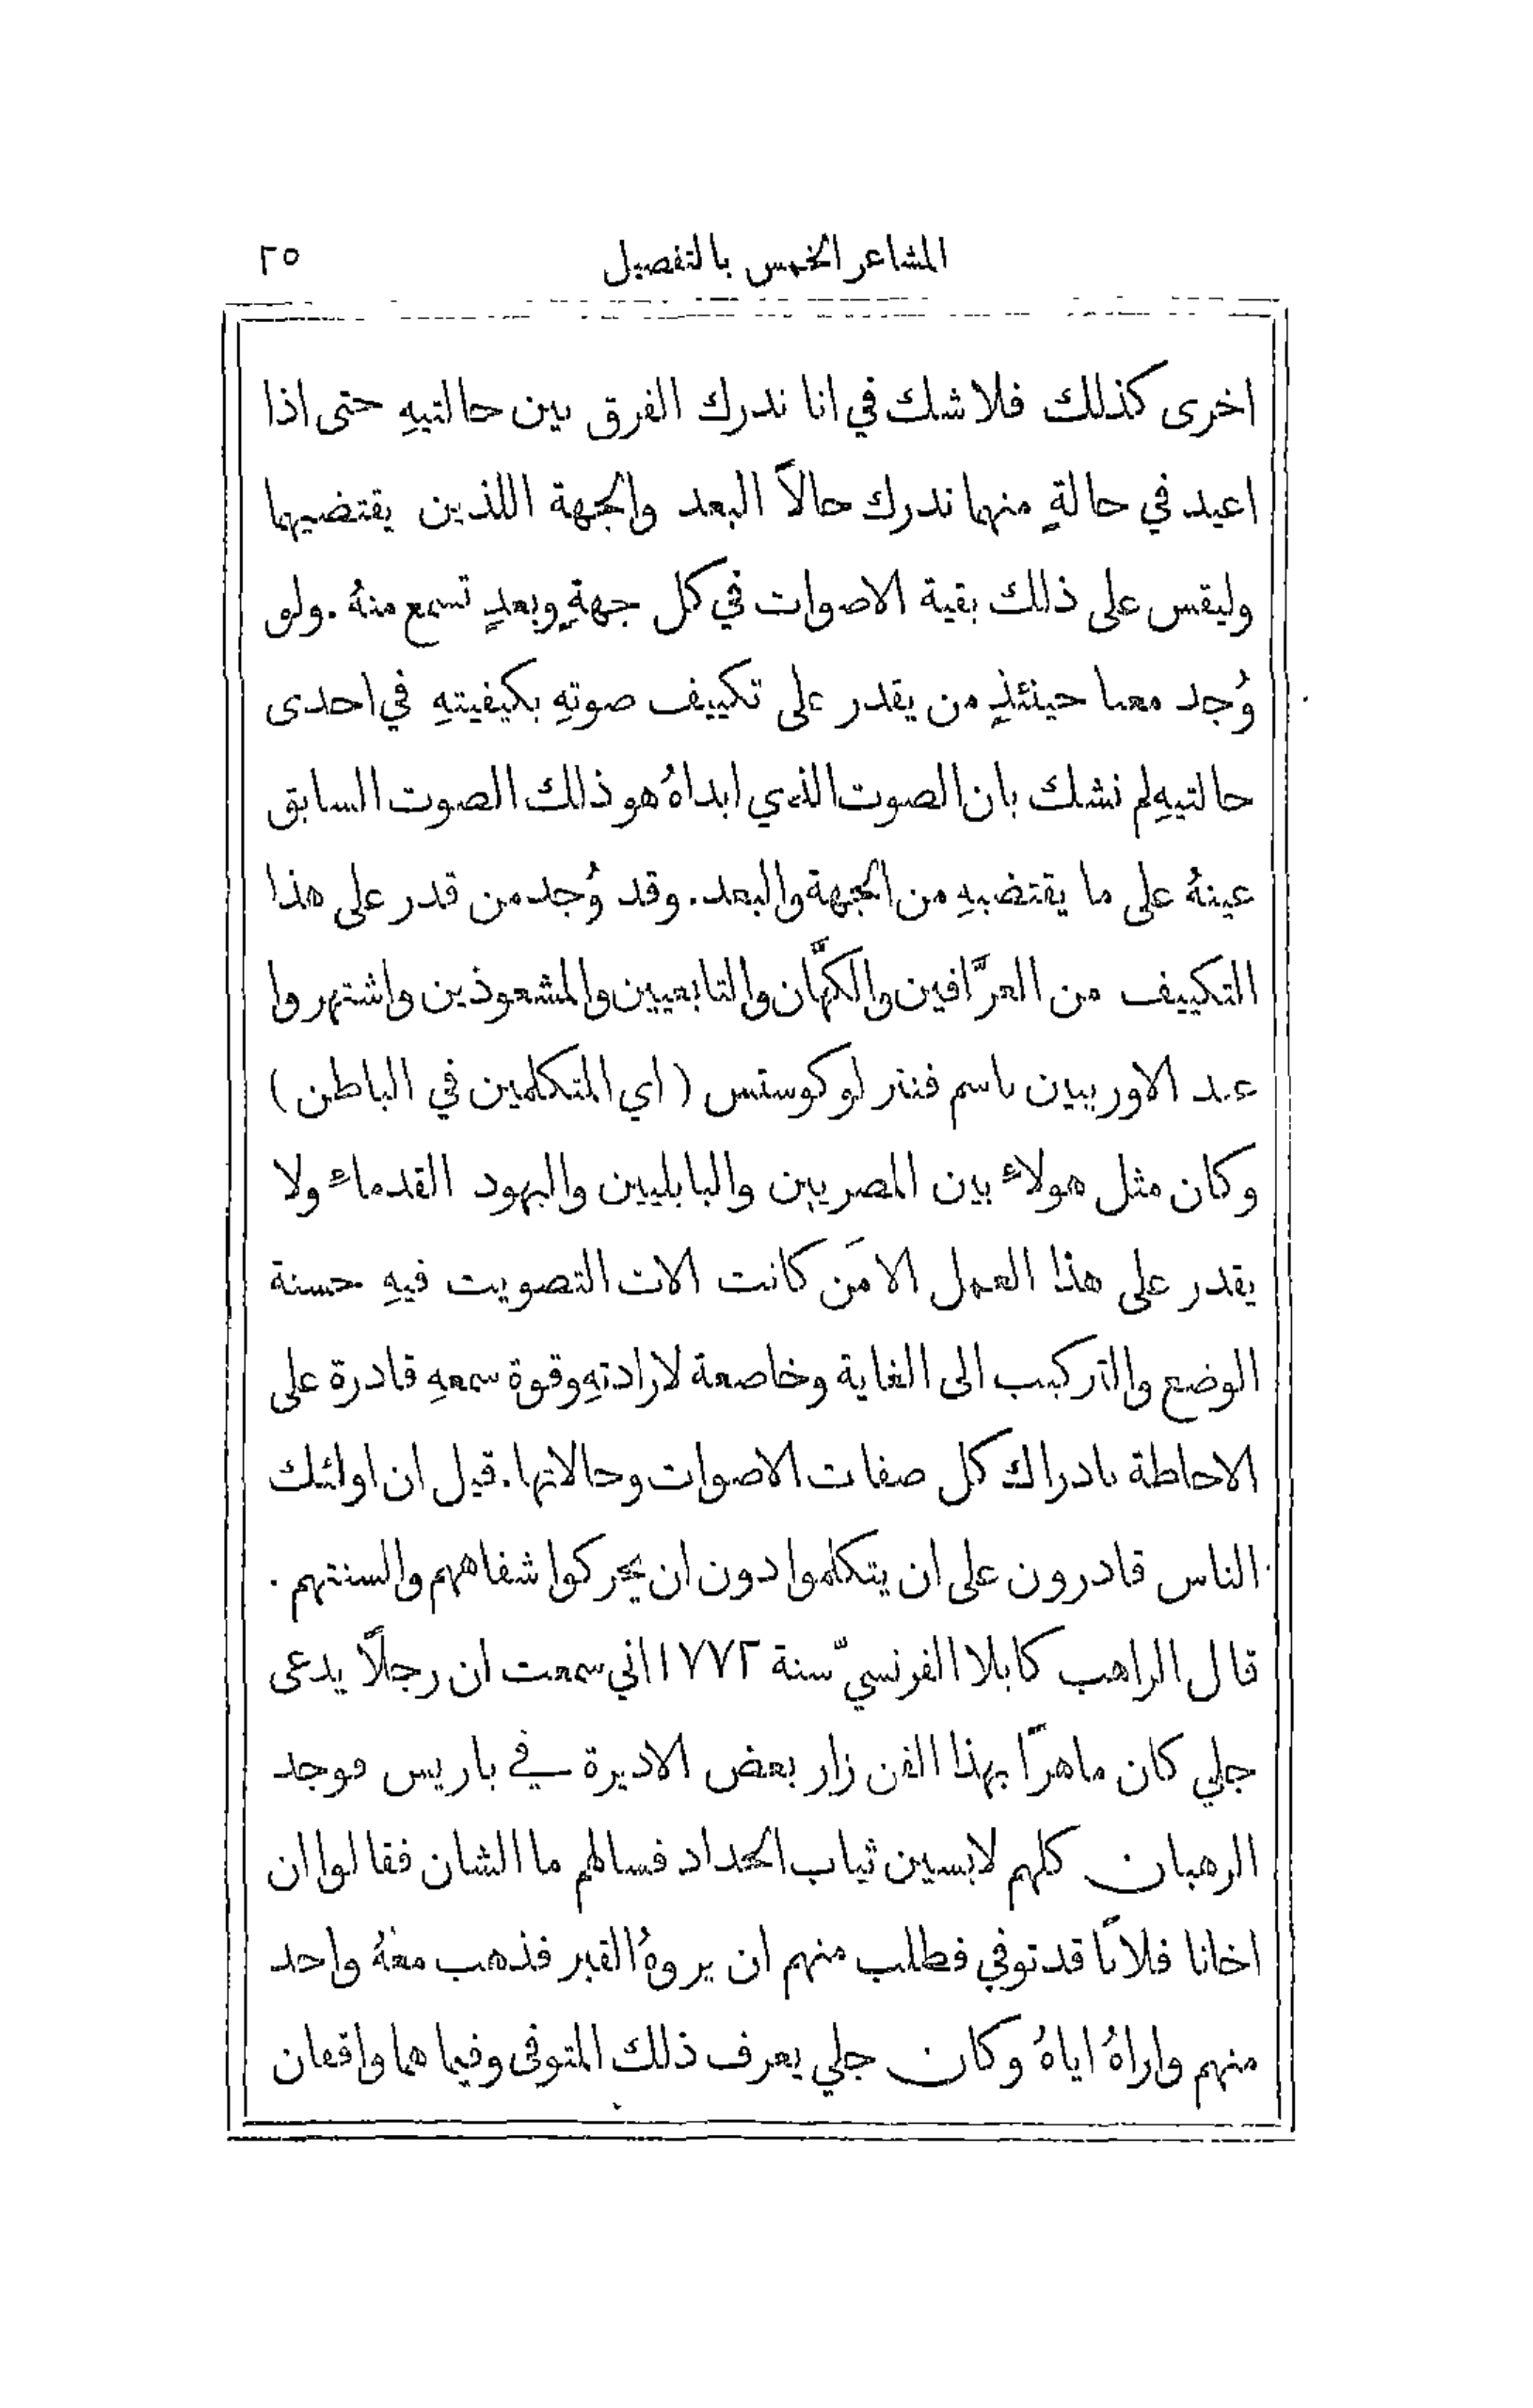 المشاعر الخمس بالتفصيل ٢٥
اخرى كذلك فلا شك في انا ندرك الفرق بين حالتيهِ حتى اذا
اعيد في حالةٍ منهما ندرك حالاً البعد والجهة اللذين يقتضيهما
وليقس على ذلك بقية الاصوات في كل جهةٍ وبعدٍ تسمع منهُ. ولو
وُجد معنا حينئذٍ من يقدر على تكييف صوتهِ بكيفيتهِ في احدى
حالتيهِ لم نشك بان الصوت الذي ابداهُ هو ذلك الصوت السابق
عينهُ على ما يقتضيهِ من الجهة والبعد. وقد وُجد من قدر على هذا
التكييف من العرَّافين والكهَّان والتابعيين والمشعوذين واشتهروا
عند الاوربيين باسم فنتر لوكوستس (اي المتكلمين في الباطن)
وكان مثل هولاء بين المصريين والبابليين واليهود القدماء ولا
يقدر على هذا العمل الا مَن كانت الات التصويت فيهِ حسنة
الوضع والتركيب الى الغاية وخاضعة لارادتهِ وقوة سمعهِ قادرة على
الاحاطة بادراك كل صفات الاصوات وحالاتها. قيل ان اولئك
الناس قادرون على ان يتكلموا دون ان يحركوا شفاههم والسنتهم.
قال الراهب كابلا الفرنسيّ سنة ١٧٧٢ اني سمعت ان رجلاً يدعى
جلي كان ماهرًا بهذا الفن زار بعض الاديرة في باريس فوجد
الرهبان كلهم لابسين ثياب الحداد فسالهم ما الشان فقالوا ان
اخانا فلانًا قد توفي فطلب منهم ان يروهُ القبر فذهب معهُ واحد
منهم واراهُ اياهُ وكان جلي يعرف ذلك المتوفى وفيما هما واقفان